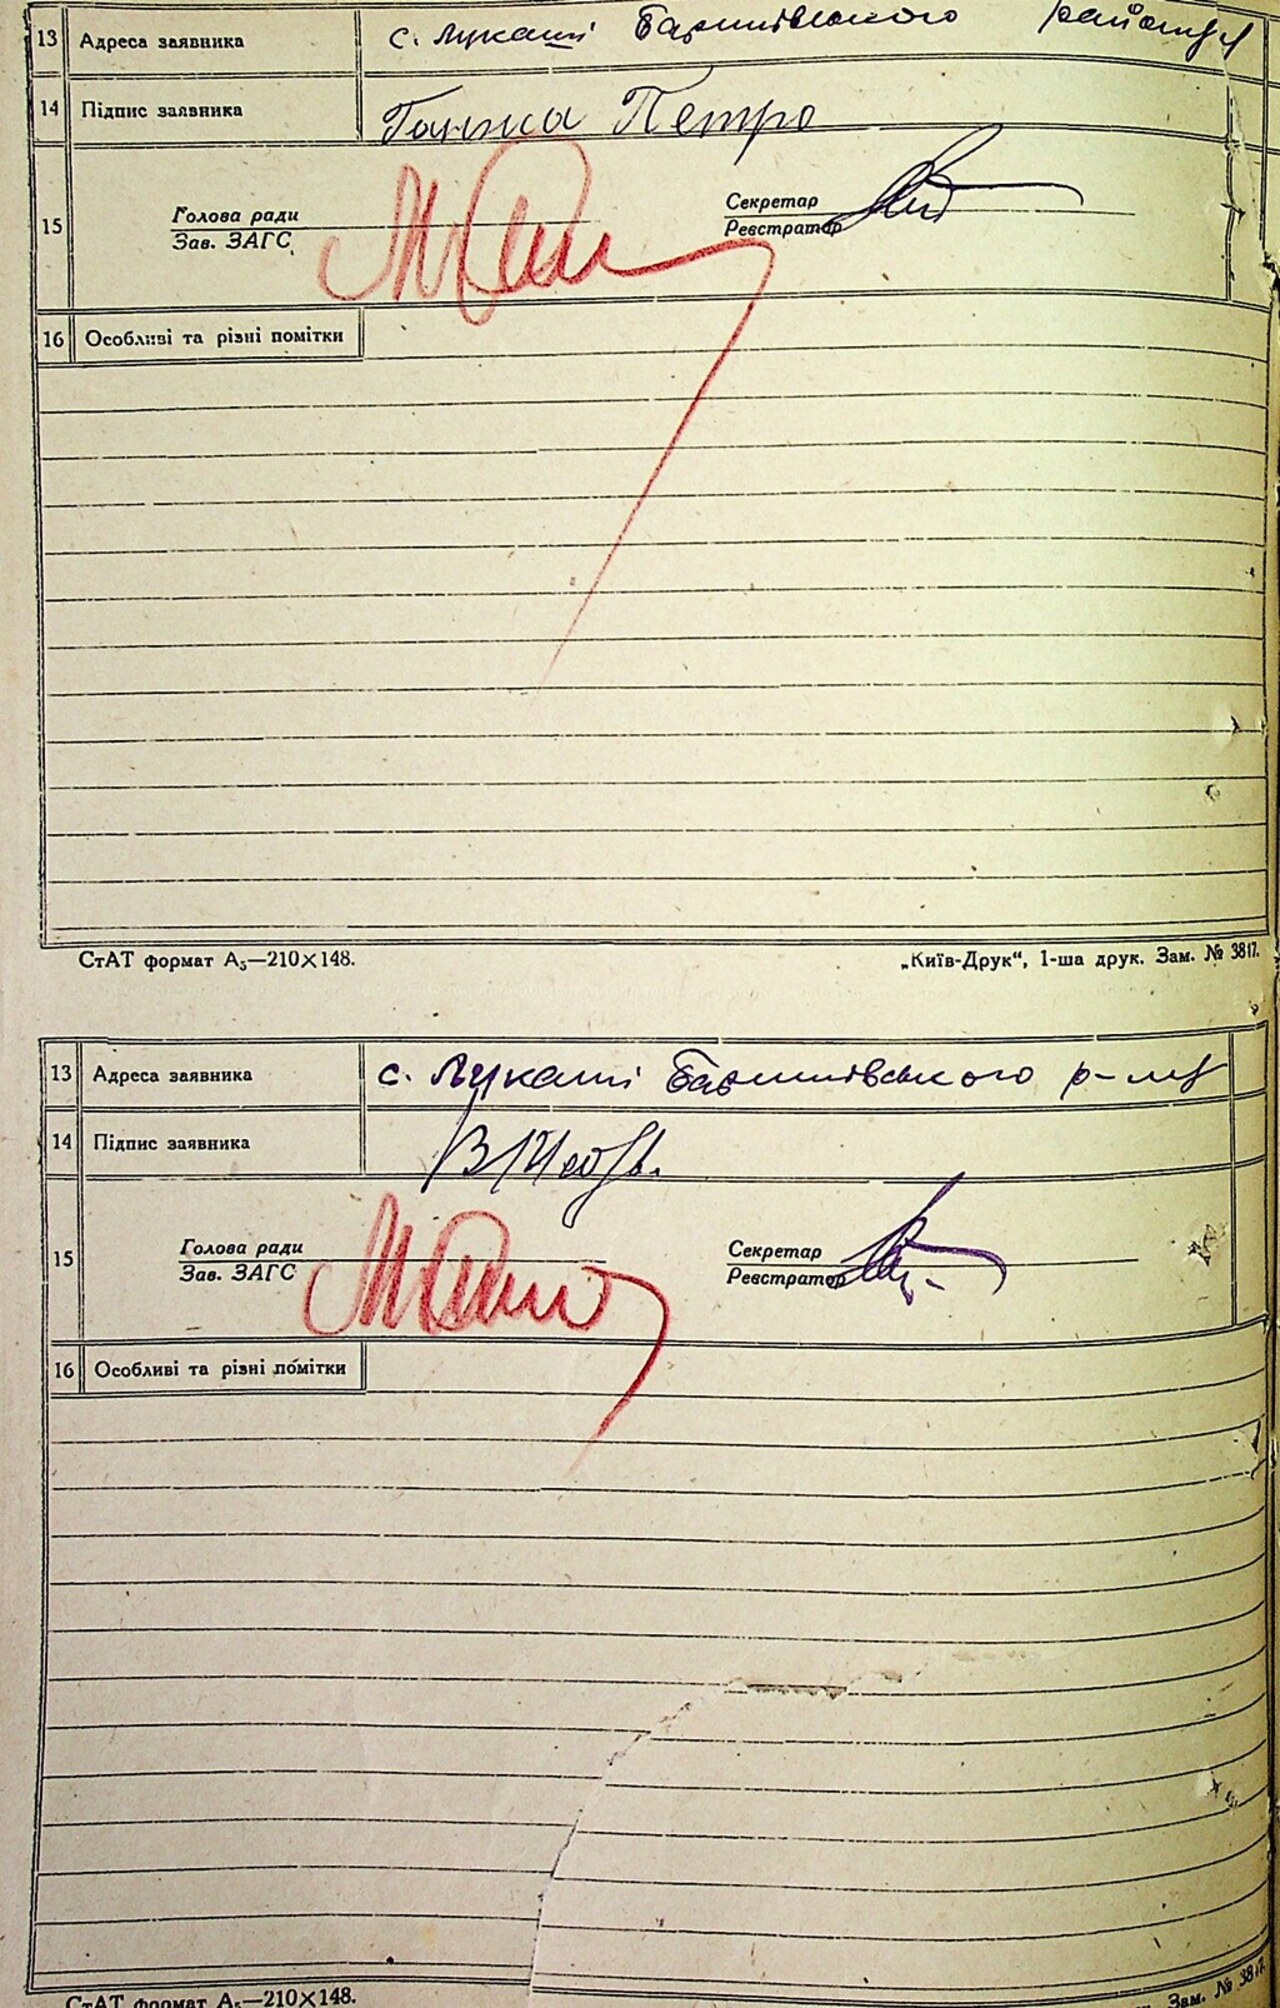 13 Адреса заявника с. Лукаші Баришівського району
14 Підпис заявника Ганжа Петро
15 Голова ради
Зав. ЗАГС
Секретар
Реєстратор
16 Особливі та різні помітки
СтАТ формат А₅—210×148. „Київ-Друк“, 1-ша друк. Зам. № 3817.
13 Адреса заявника с. Лукаші Баришівського р-ну
14 Підпис заявника
15 Голова ради
Зав. ЗАГС
Секретар
Реєстратор
16 Особливі та різні помітки
СтАТ формат А₅—210×148. Зам. № 3817.